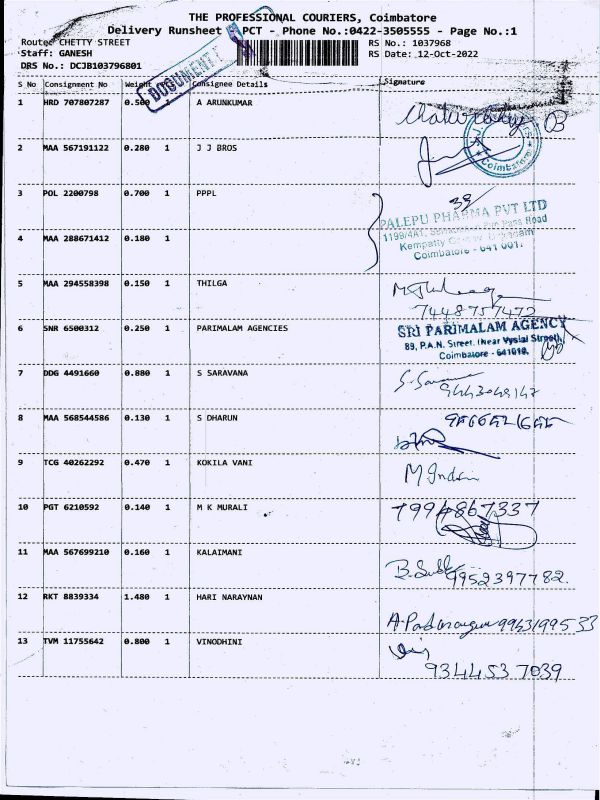 THE PROFESSIONAL COURIERS, Coimbatore
Delivery Runsheet PCT - Phone No.:0422-3505555 - Page No.:1
Route: CHETTY STREET RS No.: 1037968
Staff: GANESH RS Date: 12-Oct-2022
DRS No.: DCJB103796801
DOCUMENT
S No Consignment No Weight Consignee Details Signature
1 HRD 707807287 0.500 A ARUNKUMAR
2 MAA 567191122 0.280 1 J J BROS
Coimbatore
3 POL 2200798 0.700 1 PPPL
PALEPU PHARMA PVT LTD
Coimbatore - 641 001.
4 MAA 288671412 0.180 1
5 MAA 294558398 0.150 1 THILGA
7448757472
6 SNR 6500312 0.250 1 PARIMALAM AGENCIES
SRI PARIMALAM AGENCY
89, P.A.N. Street, (Near Vysial Street),
Coimbatore - 641018.
7 DDG 4491660 0.880 1 S SARAVANA
8 MAA 568544586 0.130 1 S DHARUN
9 TCG 40262292 0.470 1 KOKILA VANI
10 PGT 6210592 0.140 1 M K MURALI
7994867337
11 MAA 567699210 0.160 1 KALAIMANI
9952397782.
12 RKT 8839334 1.480 1 HARI NARAYNAN
13 TVM 11755642 0.800 1 VINODHINI
9344537039